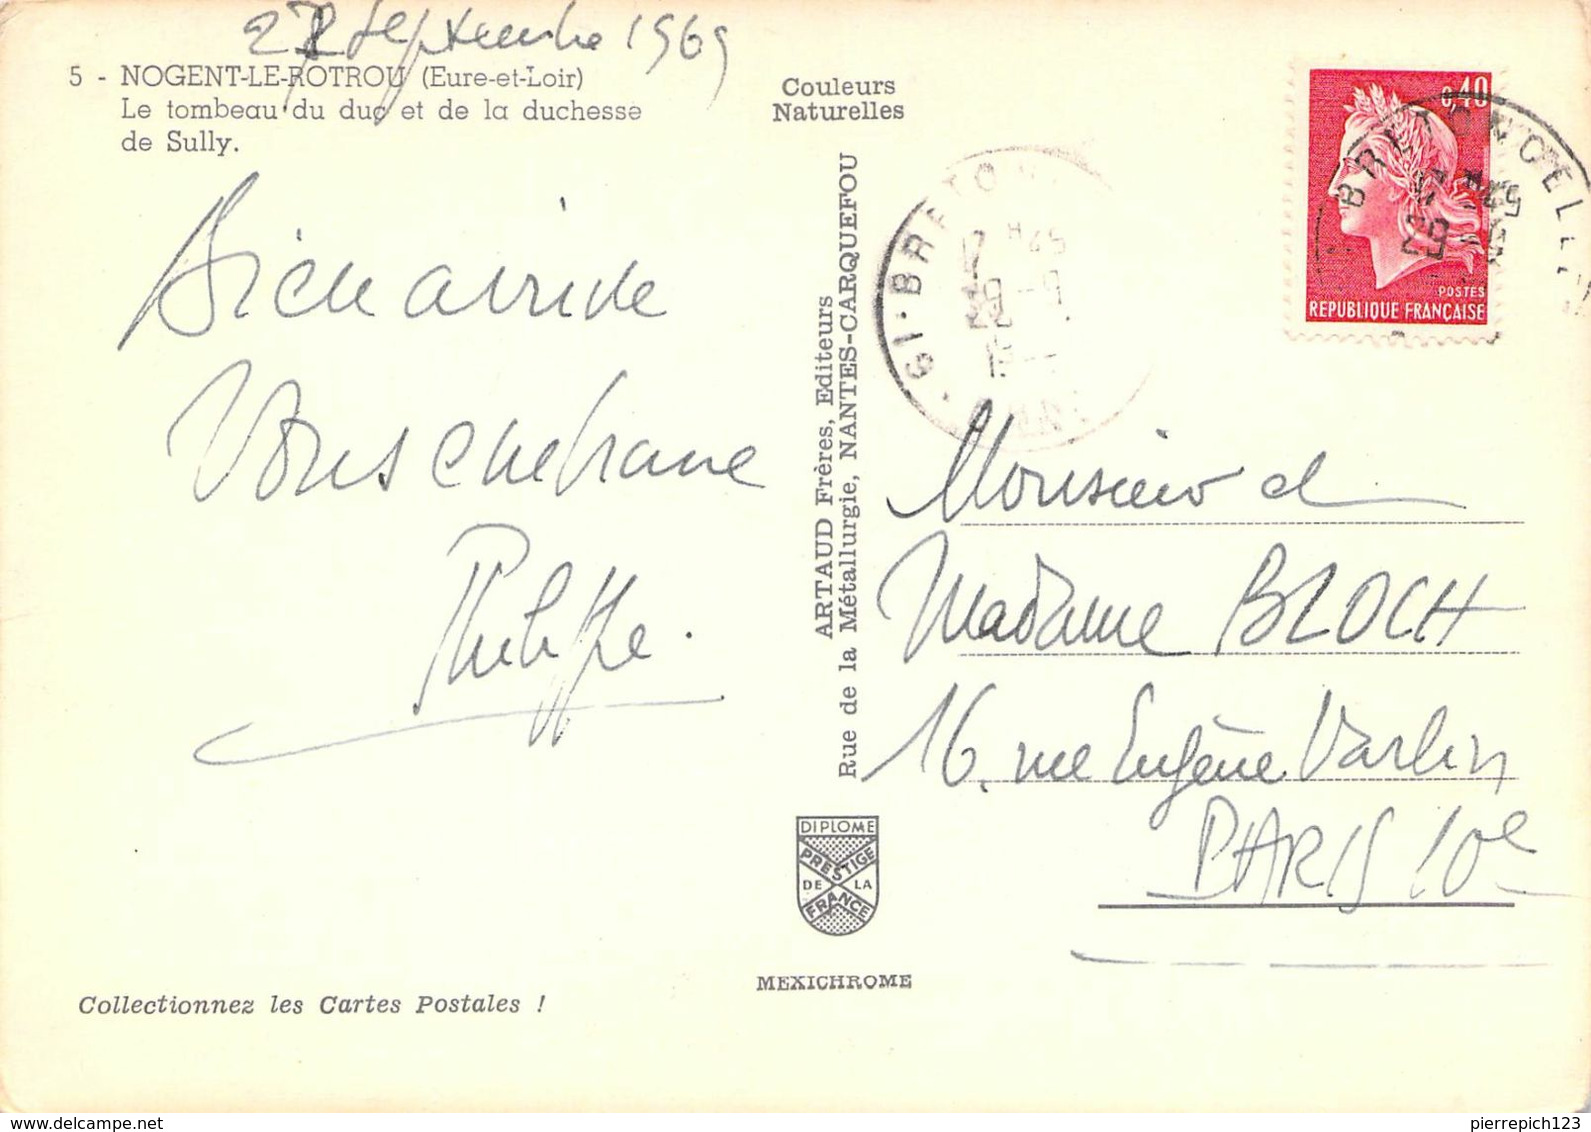 27 septembre 1969
5 - NOGENT-LE-ROTROU (Eure-et-Loir)
Le tombeau du duc et de la duchesse
de Sully.
Couleurs
Naturelles
0,40
POSTES
REPUBLIQUE FRANÇAISE
61 · BRETO
17 H 45
29 - 9
Bien arrivé
Vous embrasse
Philippe.
ARTAUD Frères, Editeurs
Rue de la Métallurgie, NANTES-CARQUEFOU
Monsieur et
Madame BLOCH
16, rue Eugène Varlin
PARIS 10e
DIPLOME
PRESTIGE
DE LA
FRANCE
MEXICHROME
Collectionnez les Cartes Postales !
pierrepich123